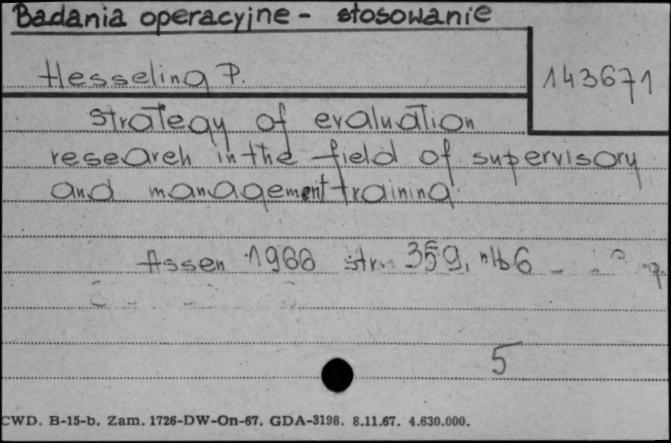 Badania operacyjne - stosowanie
Hesseling P.
143671
Strategy of evaluation
research in the field of supervisory
and management training
Assen 1966 str. 359, nlb 6
5
CWD. B-15-b. Zam. 1726-DW-On-67. GDA-3198. 8.11.67. 4.630.000.